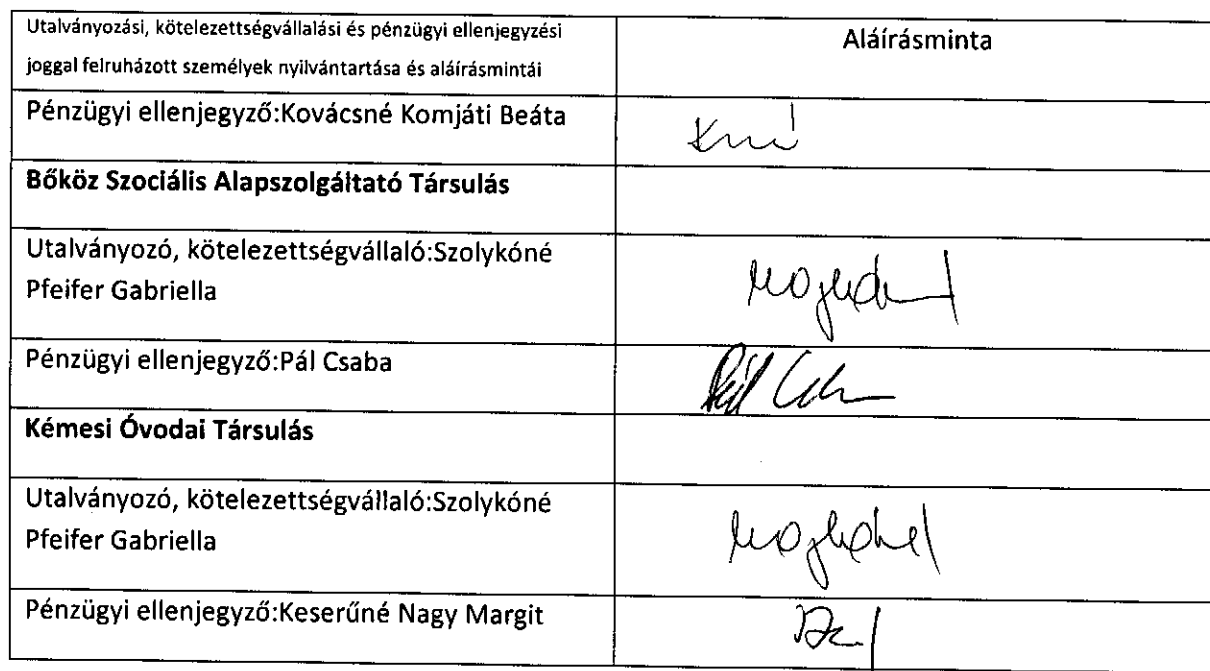 Utalványozási, kötelezettségvállalási és pénzügyi ellenjegyzési
joggal felruházott személyek nyilvántartása és aláírásmintái
Aláírásminta
Pénzügyi ellenjegyző:Kovácsné Komjáti Beáta
Bőköz Szociális Alapszolgáltató Társulás
Utalványozó, kötelezettségvállaló:Szolykóné
Pfeifer Gabriella
Pénzügyi ellenjegyző:Pál Csaba
Kémesi Óvodai Társulás
Utalványozó, kötelezettségvállaló:Szolykóné
Pfeifer Gabriella
Pénzügyi ellenjegyző:Keserűné Nagy Margit